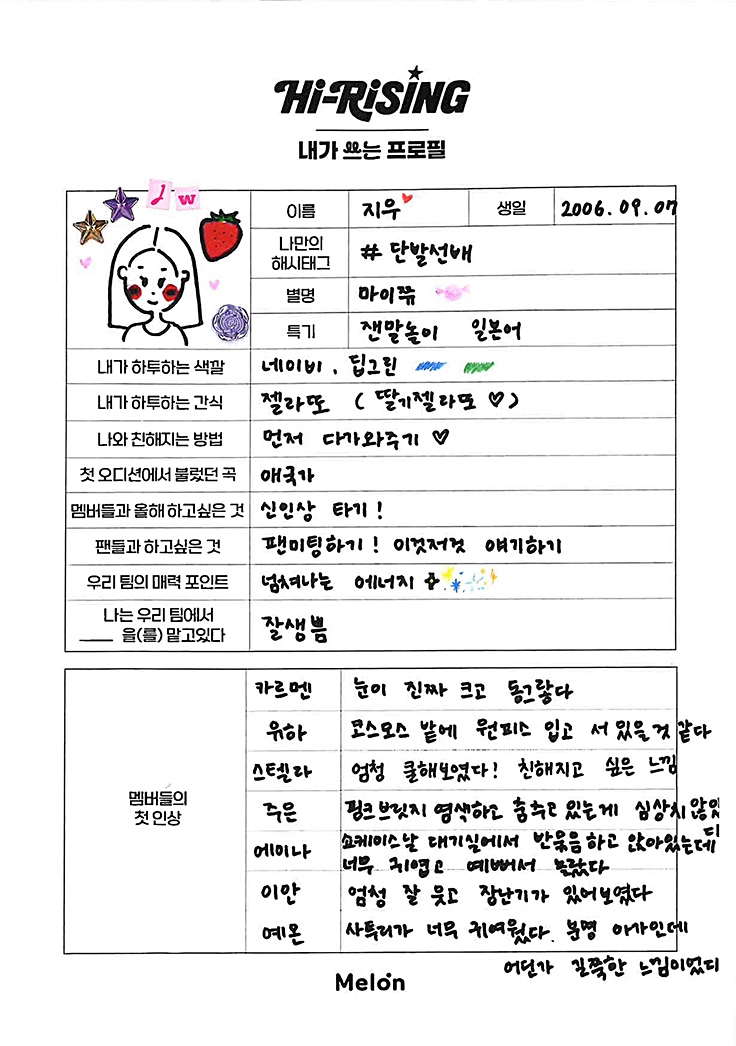 Hi-RiSiNG
내가 쓰는 프로필
J w
이름 지우 생일 2006.09.07
나만의
해시태그 # 단발선배
별명 마이쮸
특기 잰말놀이 일본어
내가 하투하는 색깔 네이비, 딥그린
내가 하투하는 간식 젤라또 (딸기젤라또 ♡)
나와 친해지는 방법 먼저 다가와주기 ♡
첫 오디션에서 불렀던 곡 애국가
멤버들과 올해 하고싶은 것 신인상 타기!
팬들과 하고싶은 것 팬미팅하기! 이것저것 얘기하기
우리 팀의 매력 포인트 넘쳐나는 에너지
나는 우리 팀에서
____ 을(를) 맡고있다 잘생쁨
멤버들의
첫 인상
카르멘 눈이 진짜 크고 동그랗다
유하 코스모스 밭에 원피스 입고 서 있을것 같다
스텔라 엄청 쿨해보였다! 친해지고 싶은 느낌
주은 핑크브릿지 염색하고 춤추고 있는게 심상치 않았다
에이나 쇼케이스날 대기실에서 반묶음하고 앉아있는데
너무 귀엽고 예뻐서 놀랐다
이안 엄청 잘 웃고 장난기가 있어보였다
예온 사투리가 너무 귀여웠다. 분명 아가인데
어딘가 길쭉한 느낌이었다
Melon